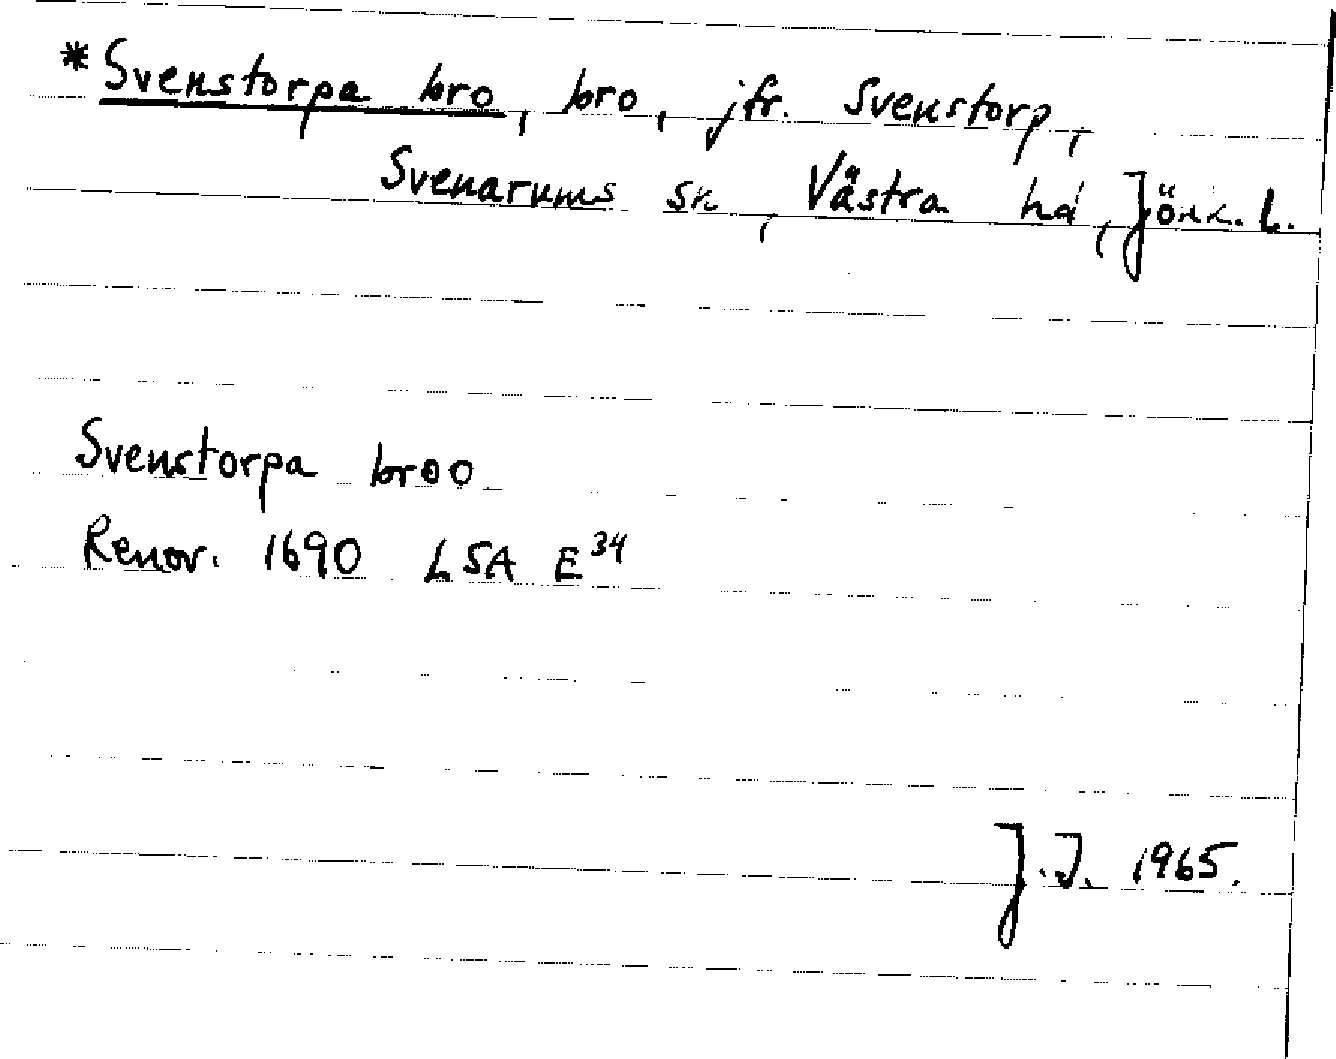 *Svenstorpa bro, bro, jfr. Svenstorp,
Svenarums sn, Västra hd, Jönk. L.
Svenstorpa broo
Renov. 1690 LSA E³⁴
J.I. 1965.